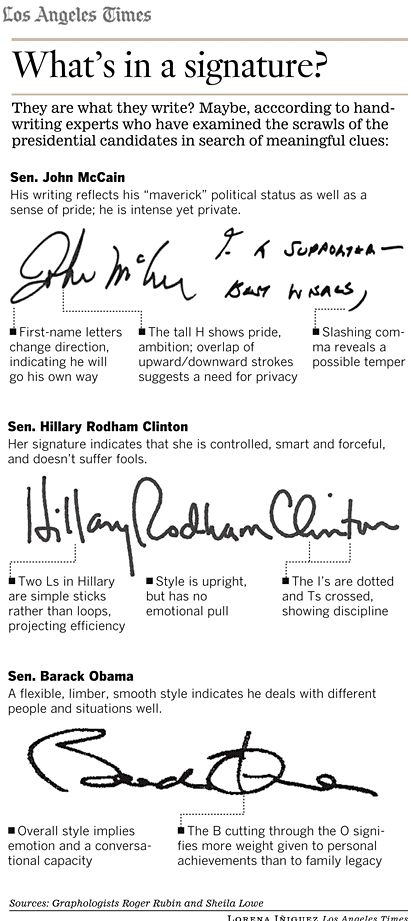 Los Angeles Times
What's in a signature?
They are what they write? Maybe, acccording to hand-
writing experts who have examined the scrawls of the
presidential candidates in search of meaningful clues:
Sen. John McCain
His writing reflects his “maverick” political status as well as a
sense of pride; he is intense yet private.
John McCain
To a supporter—
Best wishes,
■ First-name letters
change direction,
indicating he will
go his own way
■ The tall H shows pride,
ambition; overlap of
upward/downward strokes
suggests a need for privacy
■ Slashing com-
ma reveals a
possible temper
Sen. Hillary Rodham Clinton
Her signature indicates that she is controlled, smart and forceful,
and doesn't suffer fools.
Hillary Rodham Clinton
■ Two Ls in Hillary
are simple sticks
rather than loops,
projecting efficiency
■ Style is upright,
but has no
emotional pull
■ The I's are dotted
and Ts crossed,
showing discipline
Sen. Barack Obama
A flexible, limber, smooth style indicates he deals with different
people and situations well.
■ Overall style implies
emotion and a conversa-
tional capacity
■ The B cutting through the O signi-
fies more weight given to personal
achievements than to family legacy
Sources: Graphologists Roger Rubin and Sheila Lowe
Lorena Iñiguez Los Angeles Times